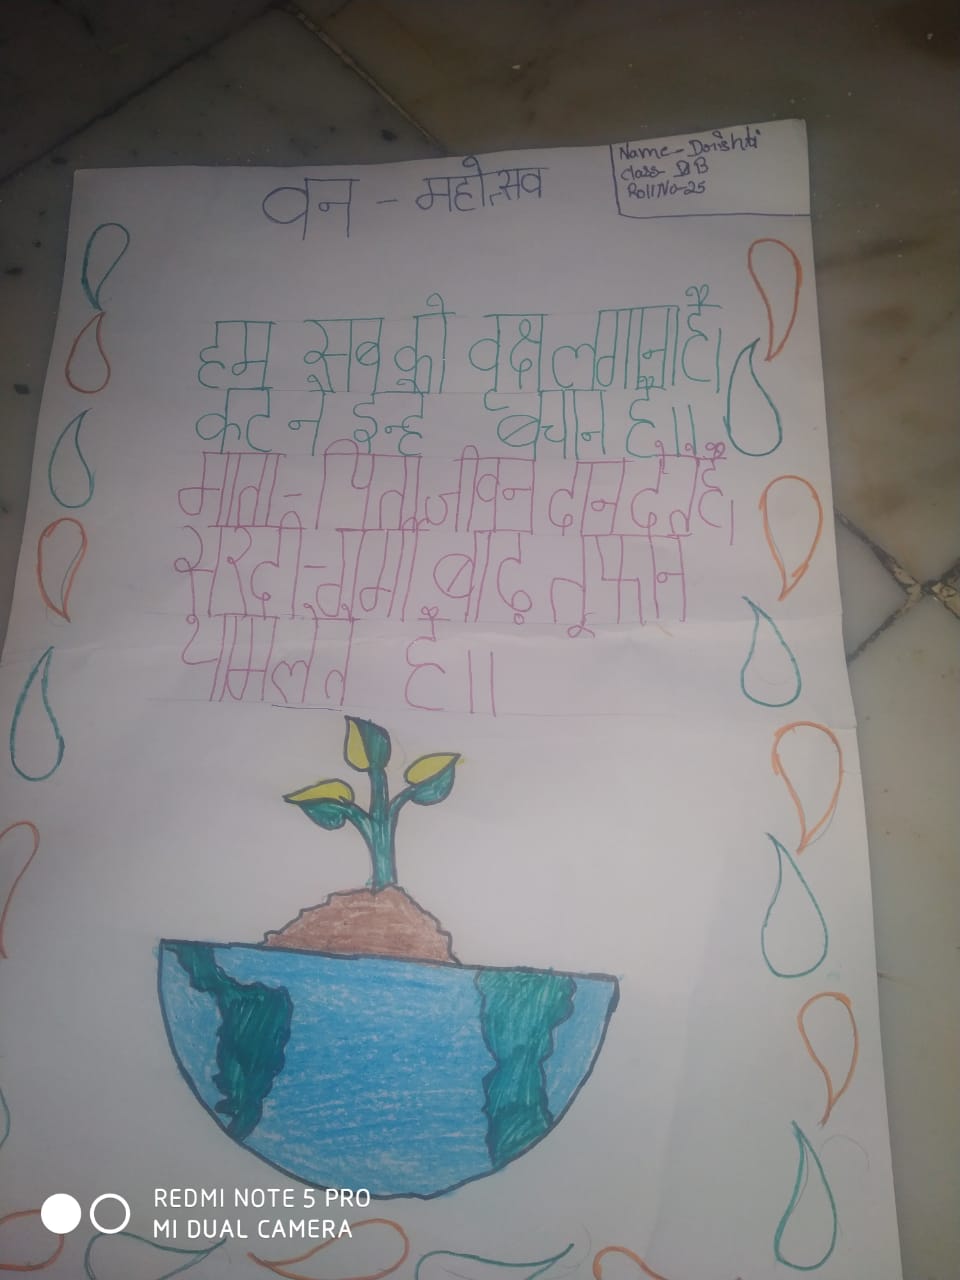 वन - महोत्सव
Name - Dorishti
Class - B
Roll No-25
हम सब को वृक्ष लगाना है।
कट ने इन्हे बचान है॥
माता - पिता जीवन दान देते हैं।
सरदी-गर्मी बाढ़ तूफान
थामलेते है॥
REDMI NOTE 5 PRO
MI DUAL CAMERA